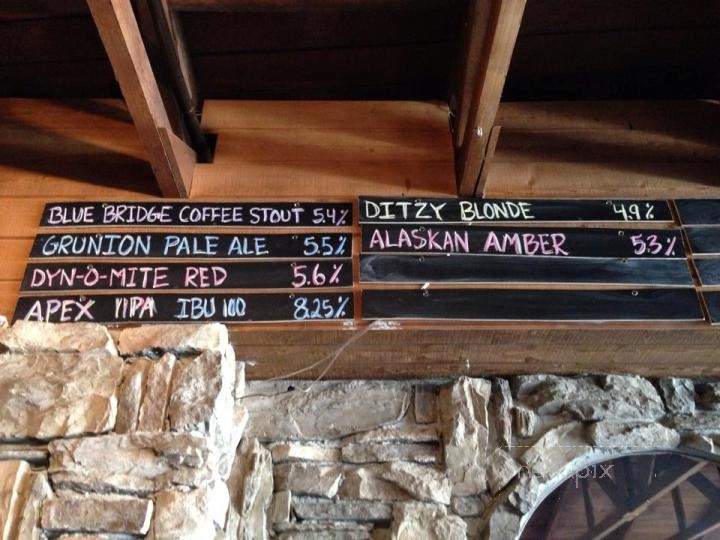 BLUE BRIDGE COFFEE STOUT 5.4%
GRUNION PALE ALE 5.5%
DYN-O-MITE RED 5.6%
APEX IIPA IBU 100 8.25%
DITZY BLONDE 4.9%
ALASKAN AMBER 5.3%